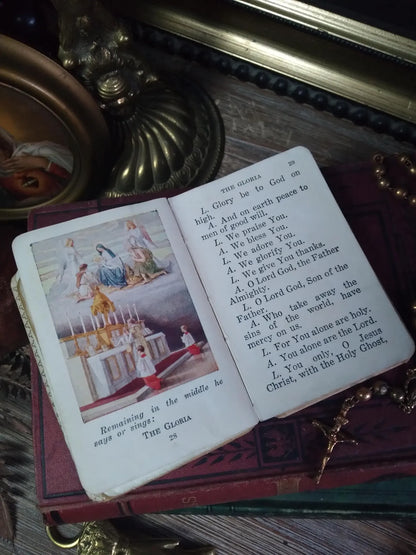 Remaining in the middle he
says or sings:
THE GLORIA
28
THE GLORIA 29
L. Glory be to God on
high.
A. And on earth peace to
men of good will.
L. We praise You.
A. We bless You.
L. We adore You.
A. We glorify You.
L. We give You thanks.
A. O Lord God, the Father
Almighty.
L. O Lord God, Son of the
Father.
A. Who take away the
sins of the world, have
mercy on us.
L. For You alone are holy.
A. You alone are the Lord.
L. You only, O Jesus
Christ, with the Holy Ghost,